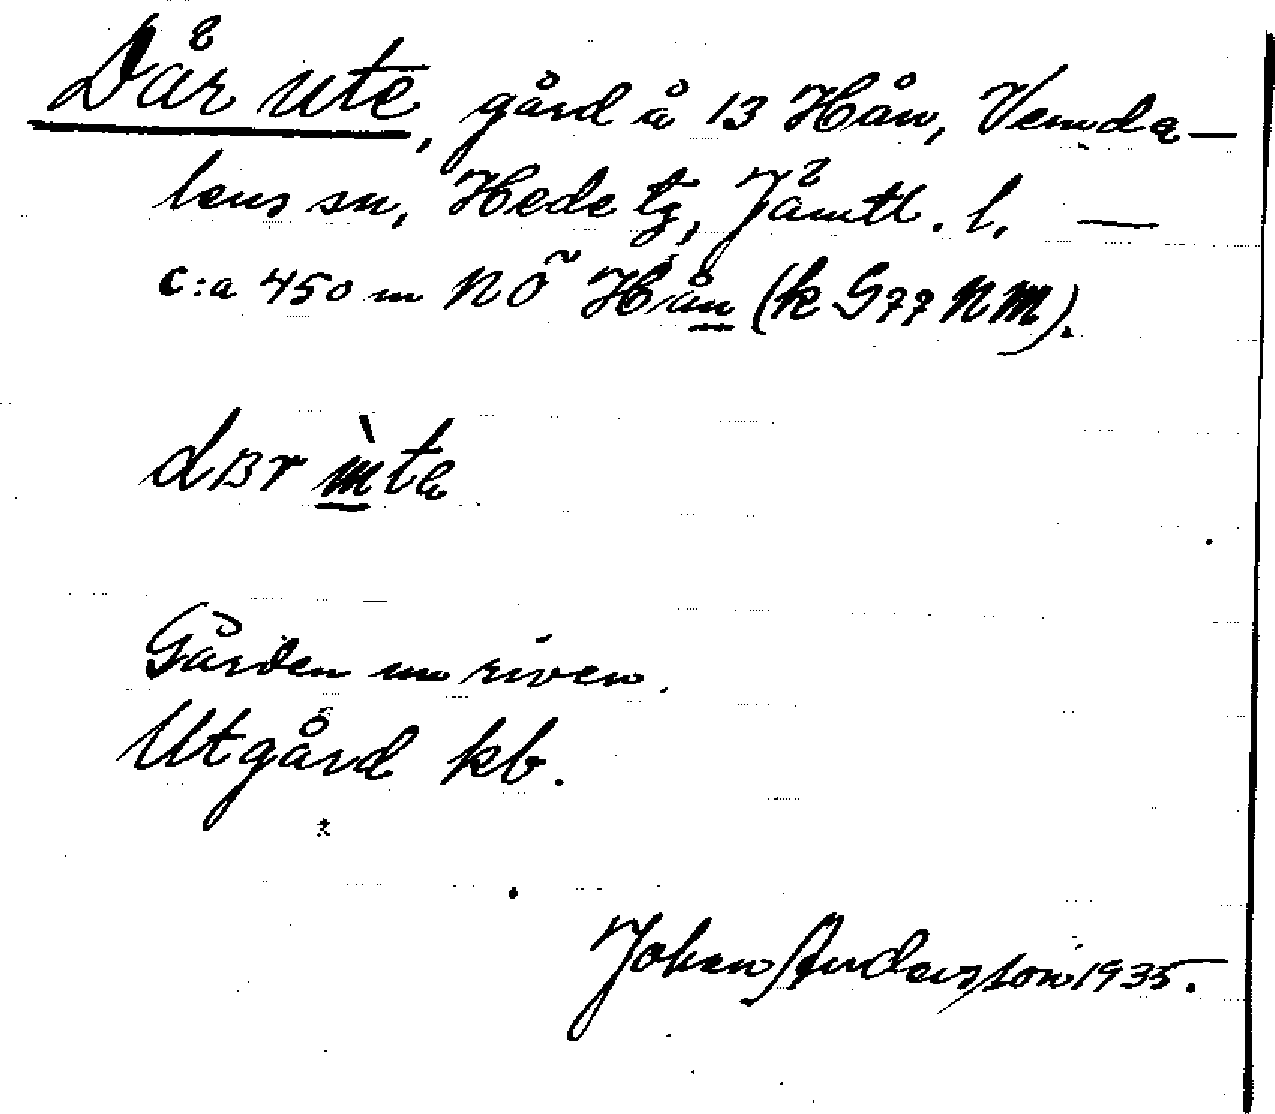 Där ute, gård å 13 Hån, Vemda-
lens sn, Hede tg, Jämtl. l. —
c:a 450 m NÖ Hån (k G77 NM).
dɜr ùta
Gården nu riven.
Utgård kb.
Johan Andersson 1935.